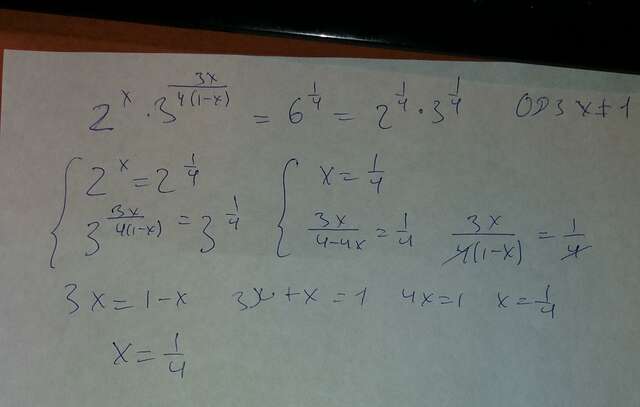 2^x · 3^(3x/(4(1-x))) = 6^(1/4) = 2^(1/4) · 3^(1/4) ОДЗ x ≠ 1
{ 2^x = 2^(1/4) { x = 1/4
3^(3x/(4(1-x))) = 3^(1/4) 3x/(4-4x) = 1/4 3x/(4(1-x)) = 1/4
3x = 1-x 3x+x = 1 4x = 1 x = 1/4
x = 1/4